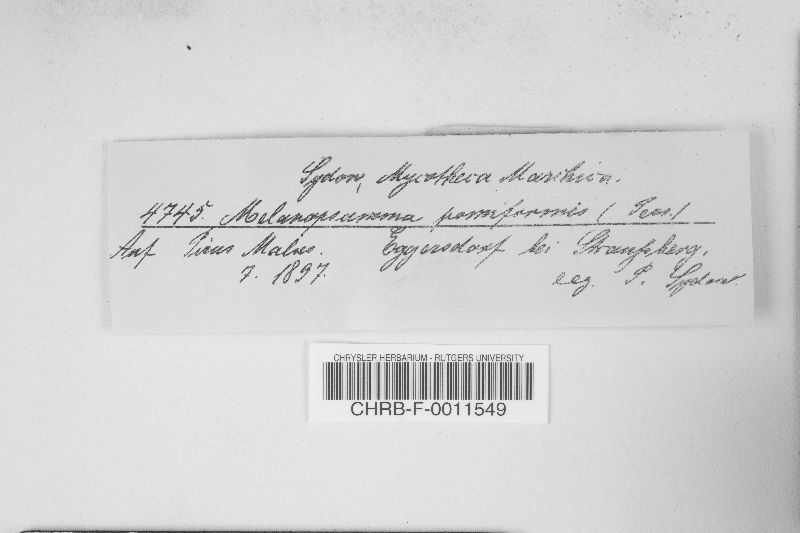 Sydow, Mycotheca Marchica.
4745. Melanopsamma pomiformis (Pers.)
Auf Pirus Malus. Eggersdorf bei Straußberg.
7. 1897. leg. P. Sydow.
CHRYSLER HERBARIUM - RUTGERS UNIVERSITY
CHRB-F-0011549